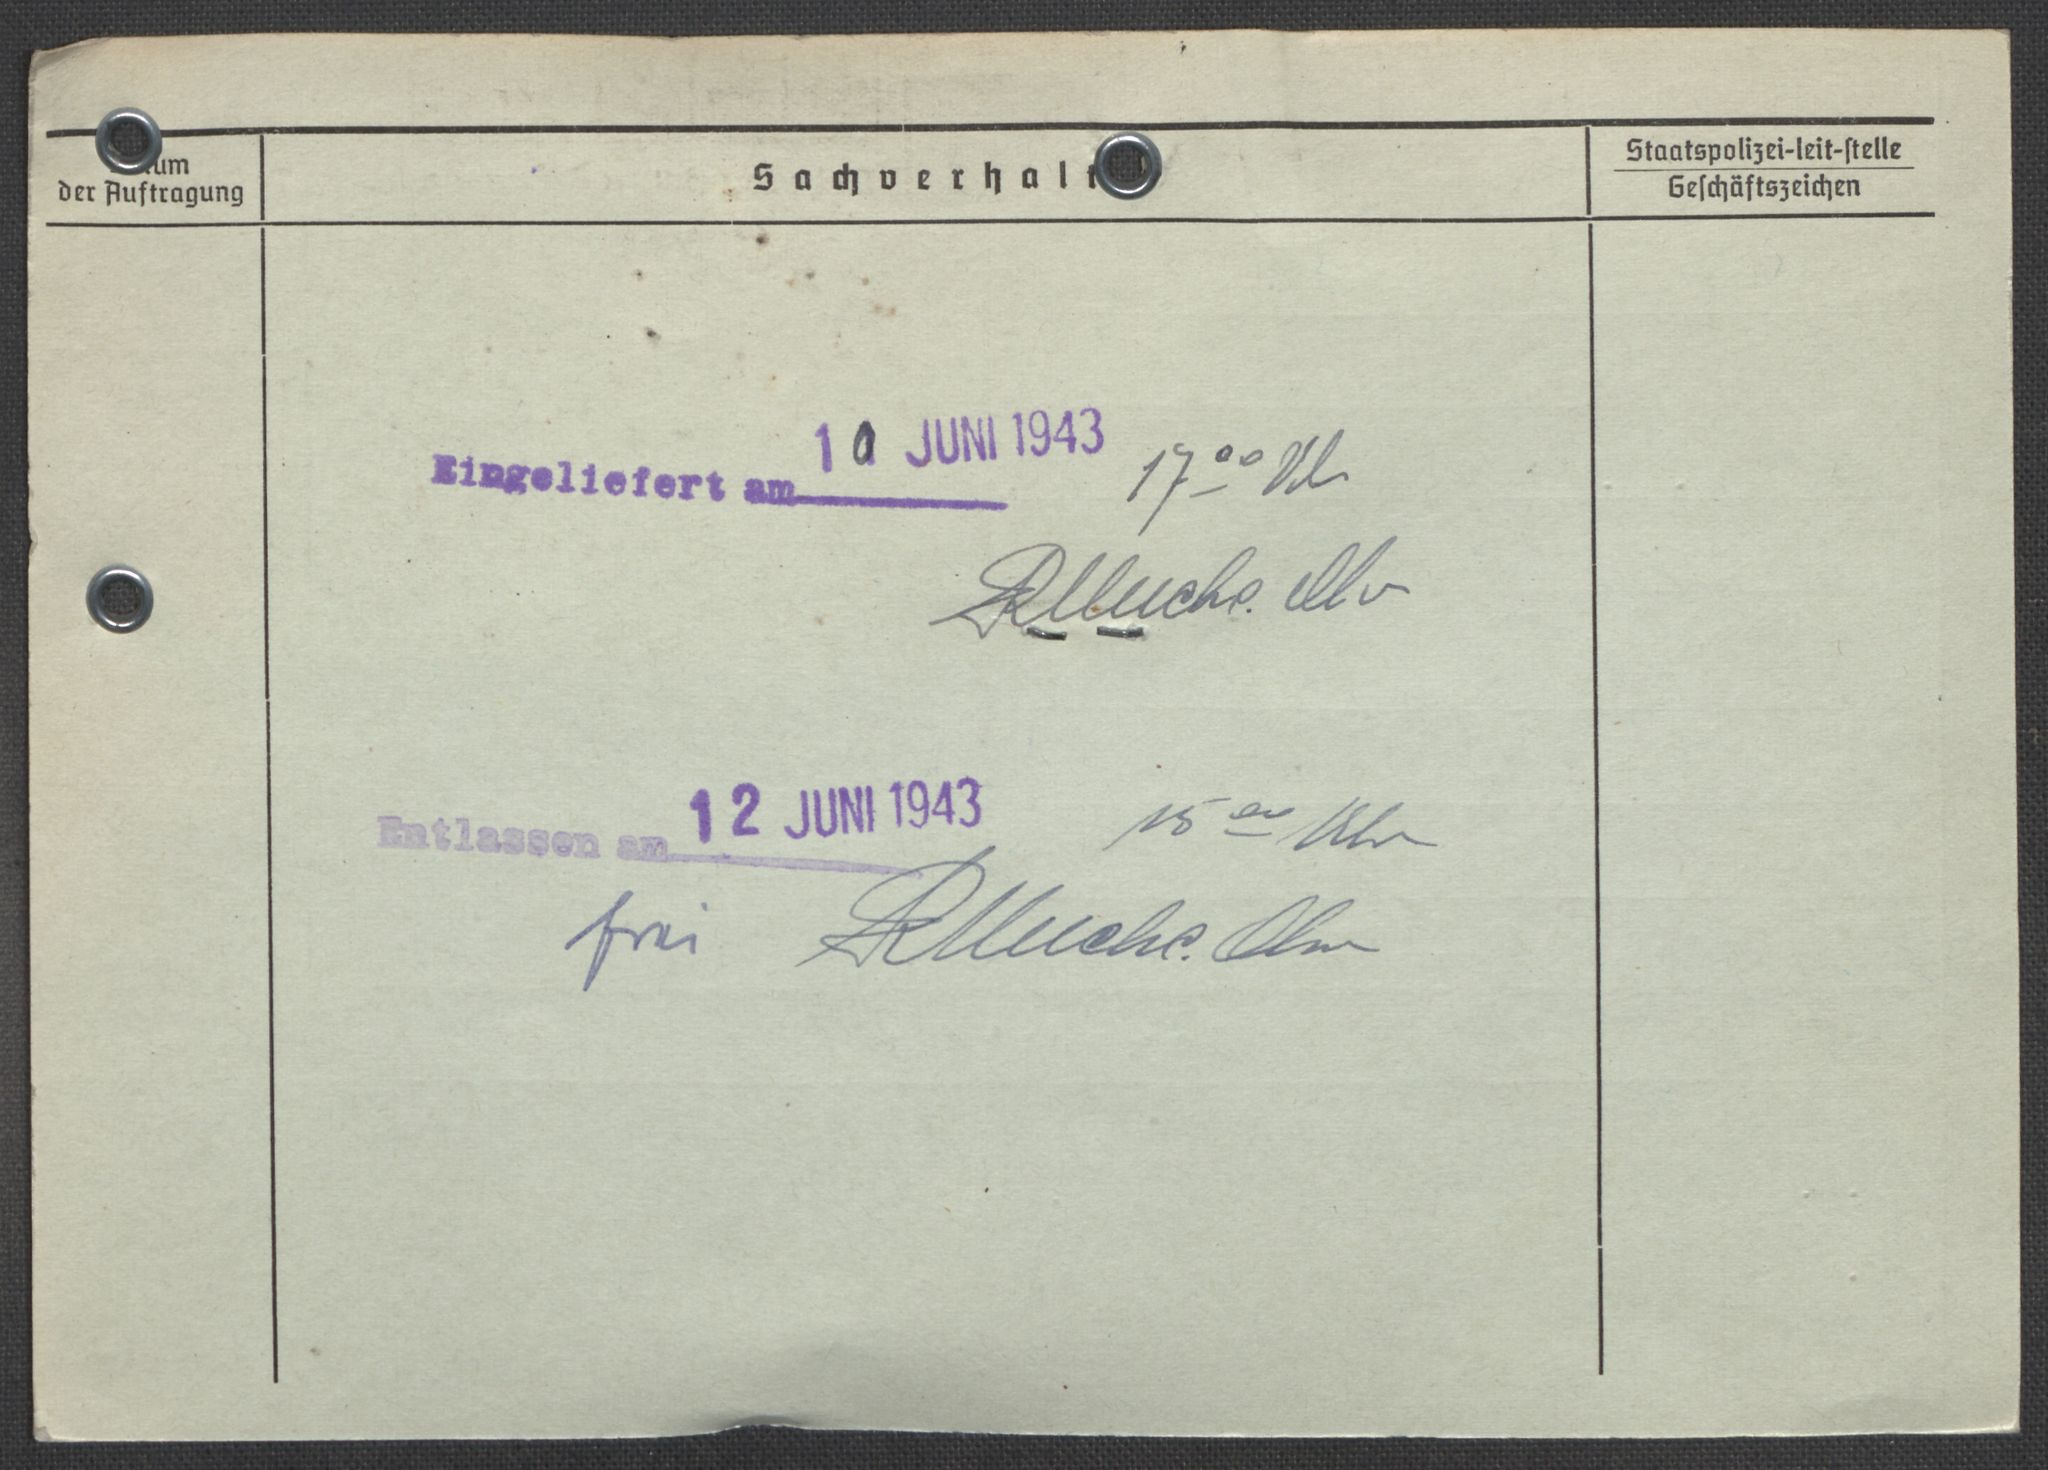 der Auftragung
Sachverhalt
Staatspolizei-leit-stelle
Geschäftszeichen
Eingeliefert am 10 JUNI 1943 17 00 Uhr
Entlassen am 12 JUNI 1943 15 00 Uhr
frei